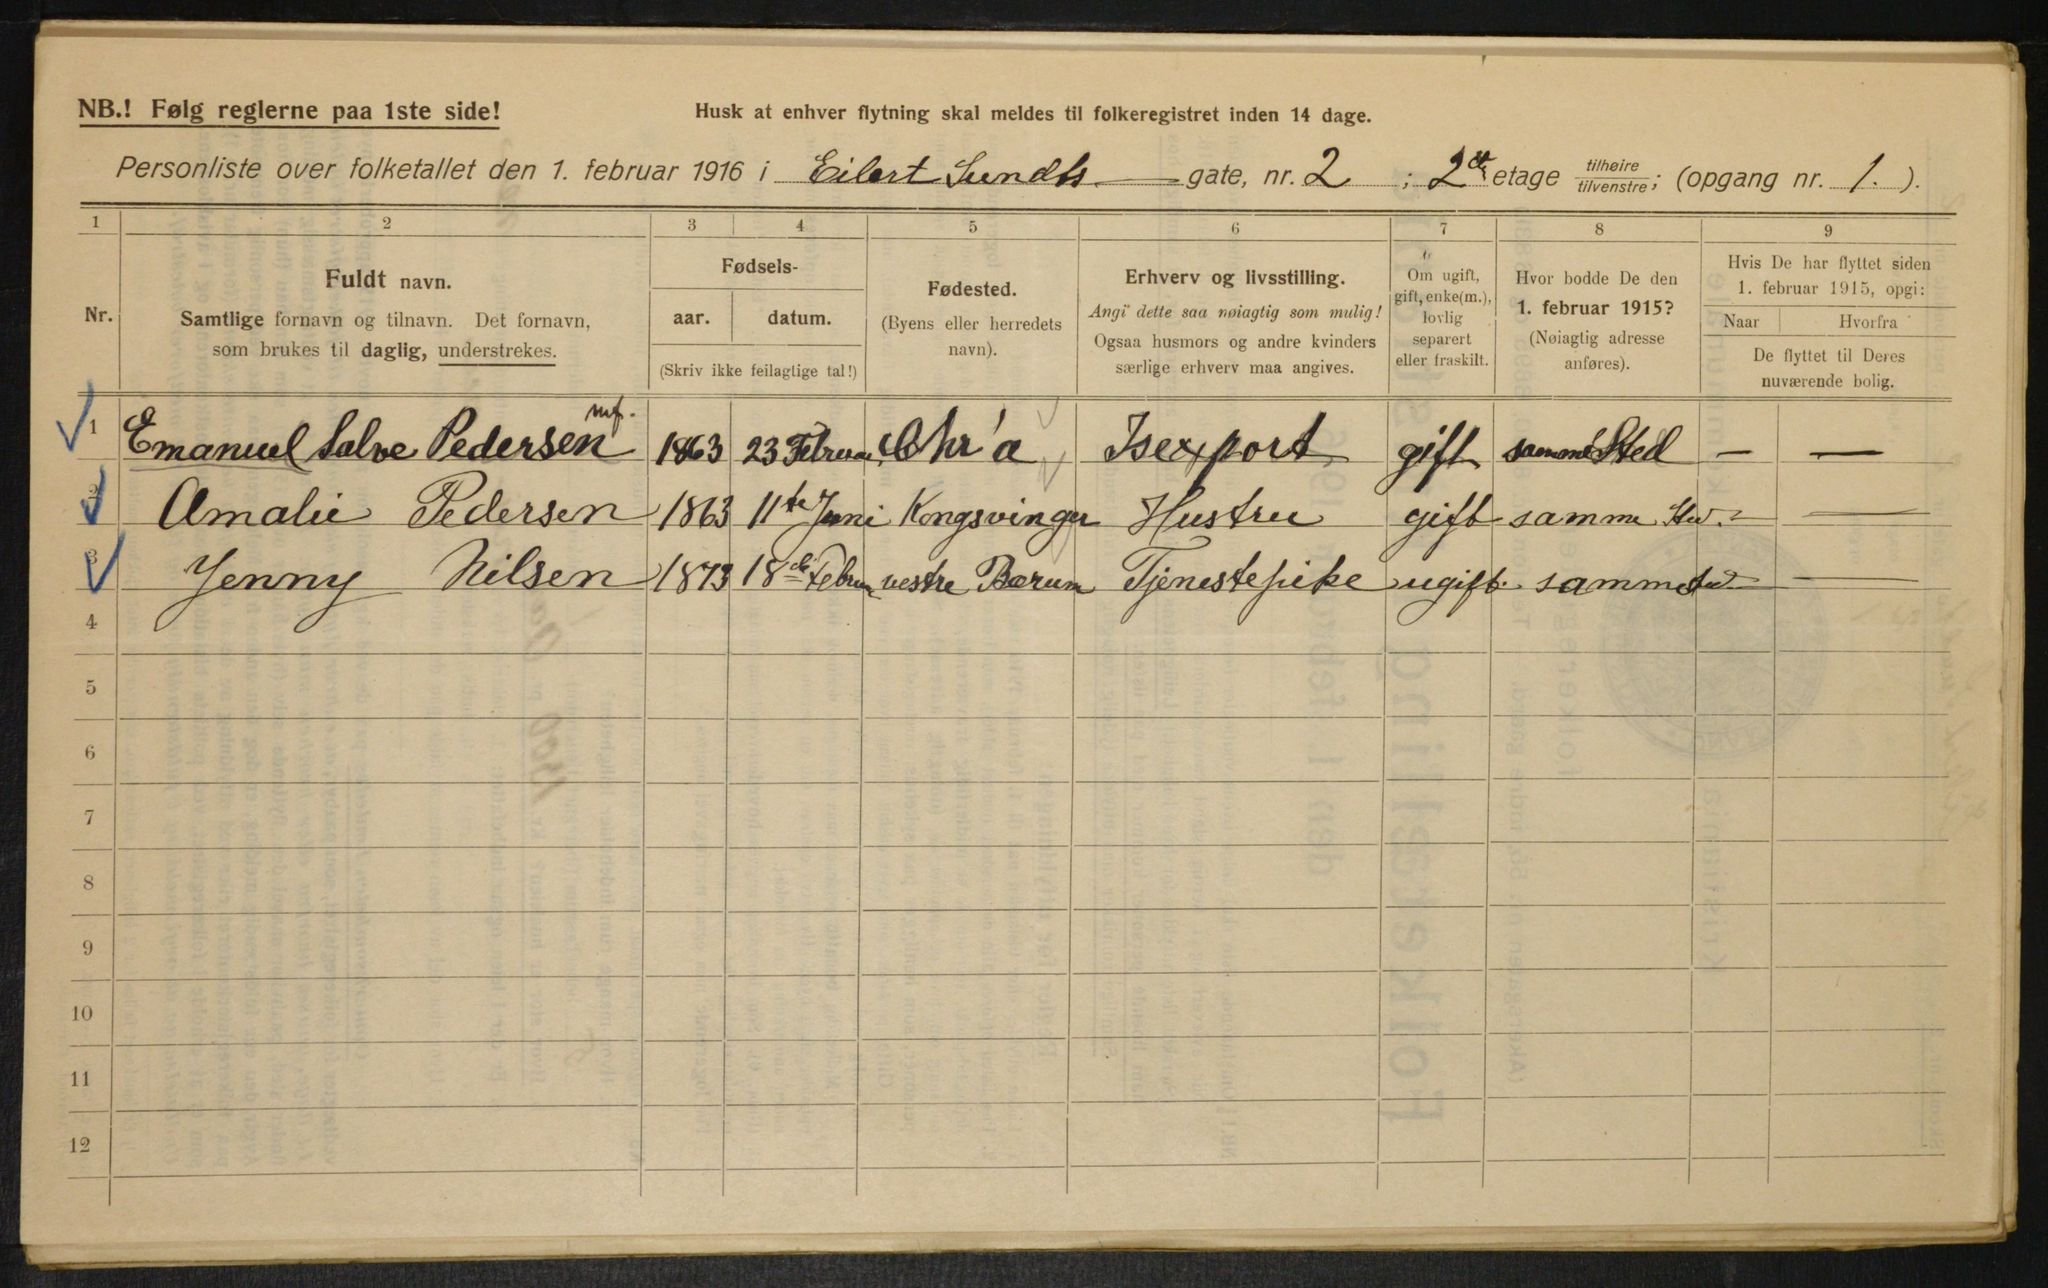 NB.! Følg reglerne paa 1ste side!
Husk at enhver flytning skal meldes til folkeregistret inden 14 dage.
Personliste over folketallet den 1. februar 1916 i Eilert Sundts gate, nr. 2 ; 2 etage tilhøire tilvenstre; (opgang nr. 1. ).
1 2 3 4 5 6 7 8 9
Nr.
Fuldt navn.
Samtlige fornavn og tilnavn. Det fornavn,
som brukes til daglig, understrekes.
Fødsels-
aar. datum.
(Skriv ikke feilagtige tal!)
Fødested.
(Byens eller herredets
navn).
Erhverv og livsstilling.
Angi dette saa nøiagtig som mulig!
Ogsaa husmors og andre kvinders
særlige erhverv maa angives.
Om ugift,
gift, enke(m.),
lovlig
separert
eller fraskilt.
Hvor bodde De den
1. februar 1915?
(Nøiagtig adresse
anføres).
Hvis De har flyttet siden
1. februar 1915, opgi:
Naar Hvorfra
De flyttet til Deres
nuværende bolig.
mf.
1 Emanuel Salve Pedersen 1863 23 Februar Chr'a Isexport gift samme Sted — —
2 Amalie Pedersen 1863 11te Juni Kongsvinger Hustru gift samme Sted. — —
3 Jenny Nilsen 1873 18de Februar vestre Bærum Tjenestepike ugift samme Sted — —
4
5
6
7
8
9
10
11
12